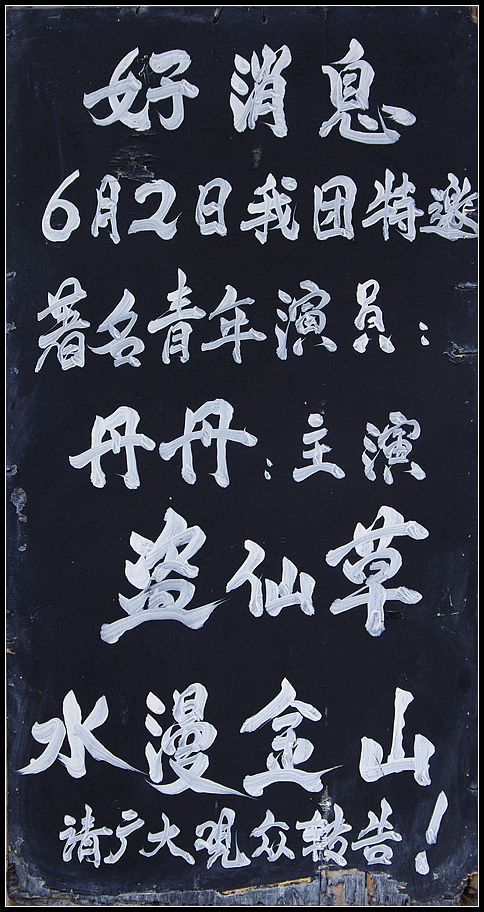 好消息
6月2日我团特邀
著名青年演员:
丹丹:主演
盗仙草
水漫金山
请广大观众转告!